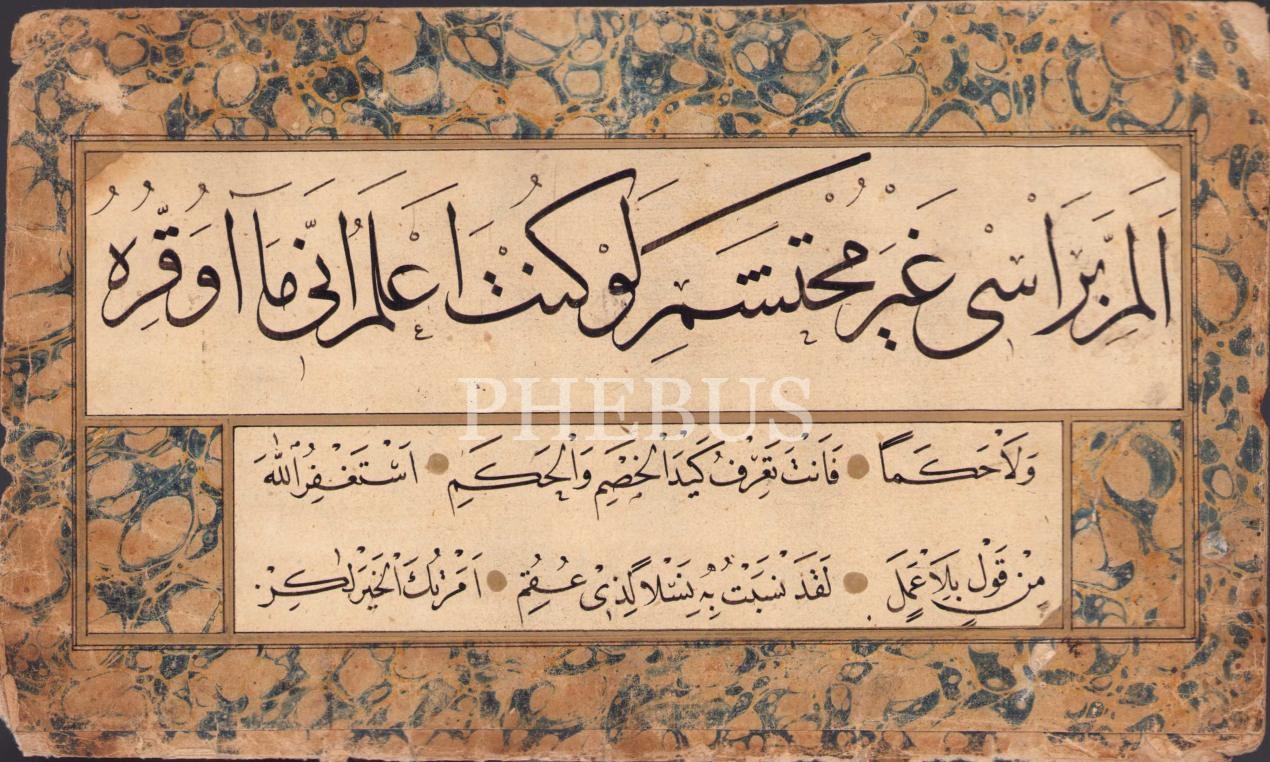 اَلَمَّ بِرَاْسى غَيْرَ مُحْتَشِمِ لَوْ كُنْتُ اَعْلَمُ اَنّى مَا اُوَقِّرُهُ
PHEBUS
وَلَا حَكَماً فَاَنْتَ تَعْرِفُ كَيْدَ الْخَصْمِ وَالْحَكَمِ اَسْتَغْفِرُ اللّٰهَ
مِنْ قَوْلٍ بِلَا عَمَلٍ لَقَدْ نَسَبْتُ بِهِ نَسْلًا لِذِى عُقُمِ اَمَرْتُكَ الْخَيْرَ لٰكِنْ